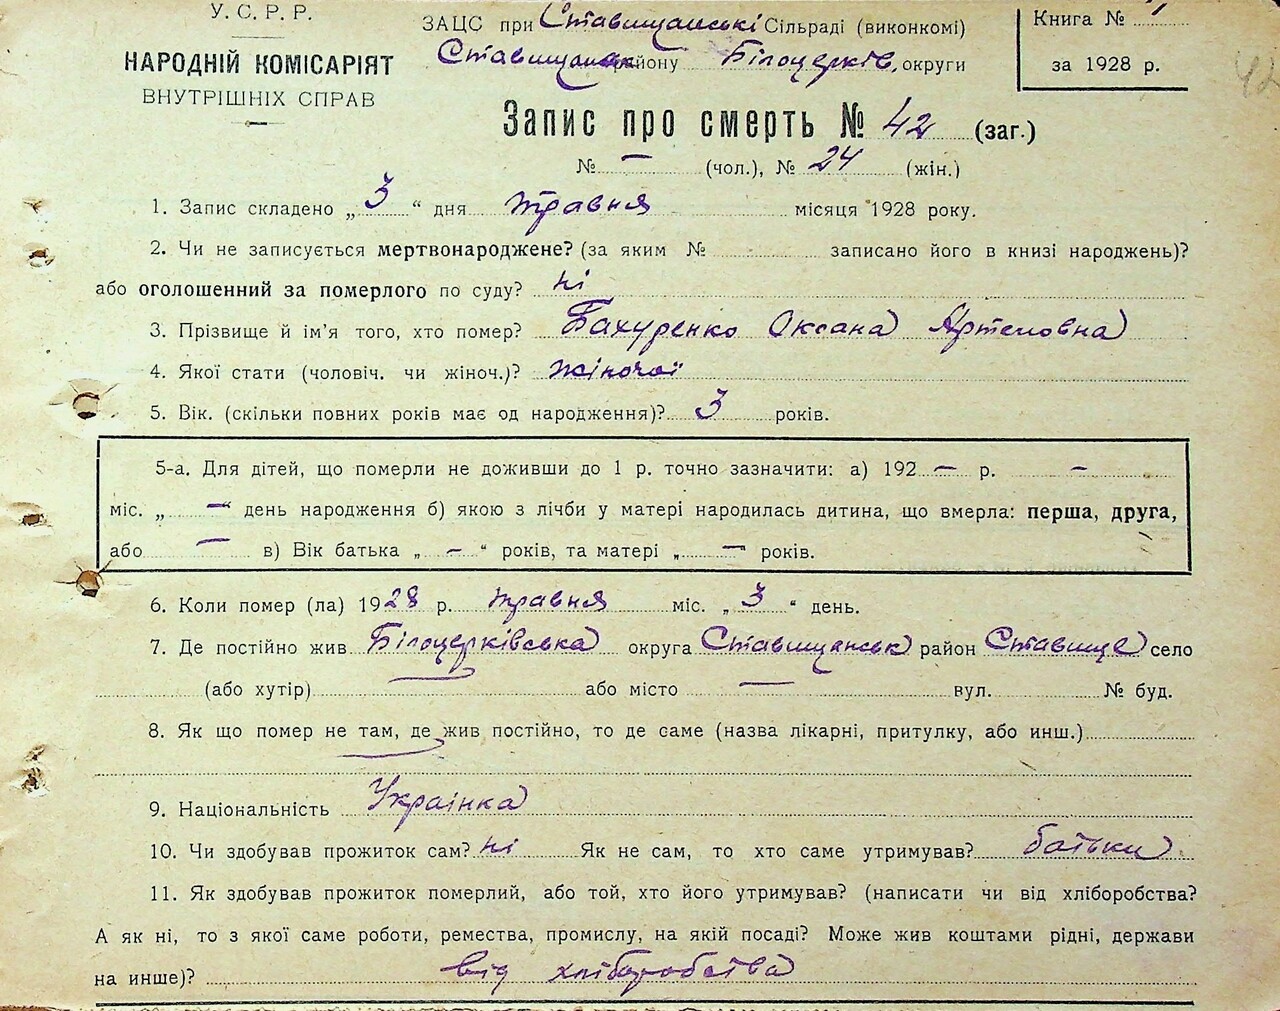 У.С.Р.Р.
НАРОДНІЙ КОМІСАРІЯТ
ВНУТРІШНІХ СПРАВ
ЗАЦС при Ставищанські Сільраді (виконкомі)
Ставищанськ району Білоцерків. округи
Книга №
за 1928 р.
42
Запис про смерть № 42 (заг.)
№ — (чол.), № 24 (жін.)
1. Запис складено „3“ дня травня місяця 1928 року.
2. Чи не записується мертвонароджене? (за яким № записано його в книзі народжень)?
або оголошенний за померлого по суду? ні
3. Прізвище й ім'я того, хто помер? Бахуренко Оксана Артемовна
4. Якої стати (чоловіч. чи жіноч.)? жіночої
5. Вік. (скільки повних років має од народження)? 3 років.
5-а. Для дітей, що померли не доживши до 1 р. точно зазначити: а) 192 — р. —
міс. „ — “ день народження б) якою з лічби у матері народилась дитина, що вмерла: перша, друга,
або — в) Вік батька „ — “ років, та матері „ — “ років.
6. Коли помер (ла) 1928 р. травня міс. „ 3 “ день.
7. Де постійно жив Білоцерківська округа Ставищанськ район Ставище село
(або хутір) або місто — вул. № буд.
8. Як що помер не там, де жив постійно, то де саме (назва лікарні, притулку, або инш.)
9. Національність Українка
10. Чи здобував прожиток сам? ні Як не сам, то хто саме утримував? батьки
11. Як здобував прожиток померлий, або той, хто його утримував? (написати чи від хліборобства?
А як ні, то з якої саме роботи, ремества, промислу, на якій посаді? Може жив коштами рідні, держави
на инше)? від хліборобства